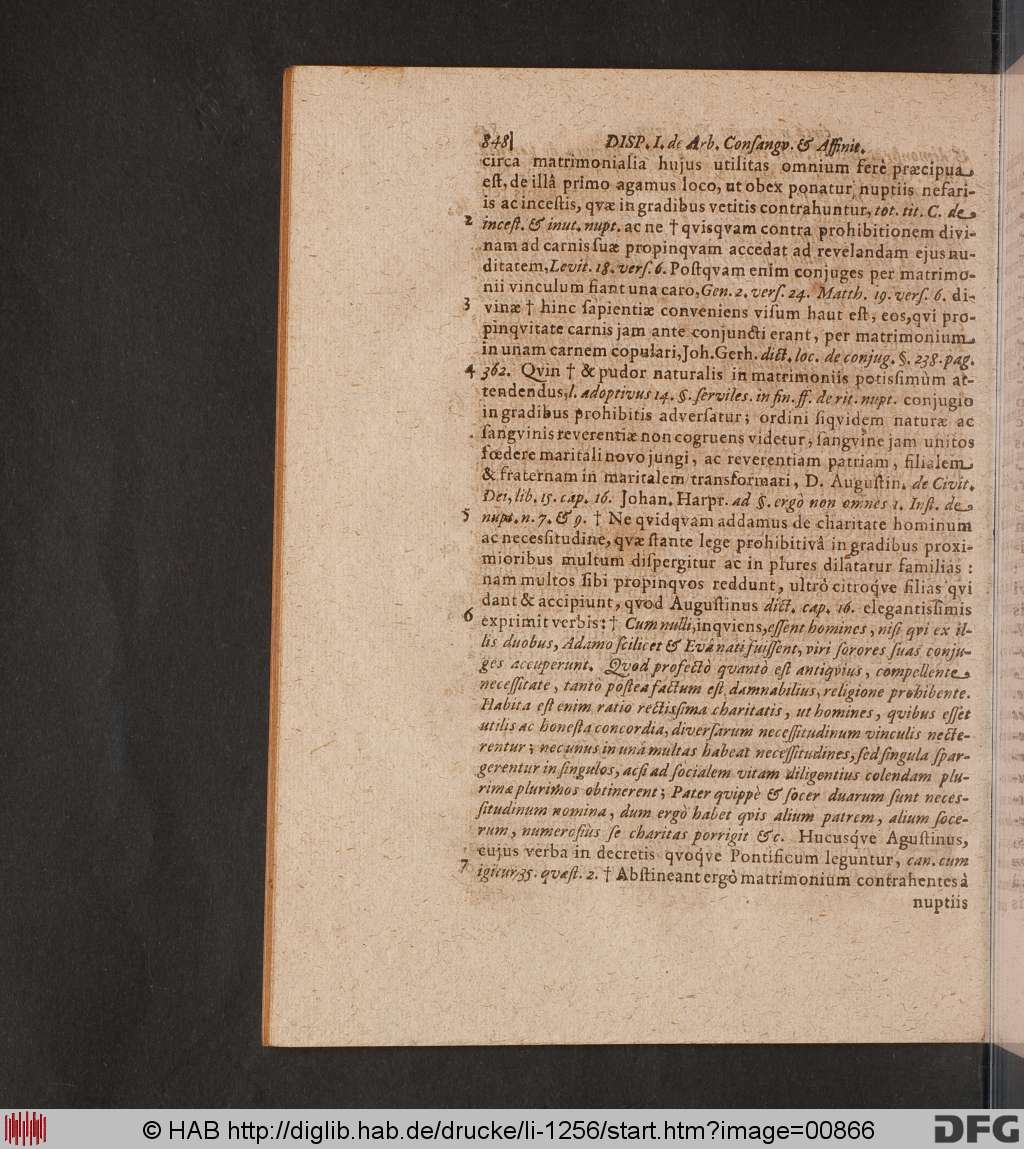 848 DISP. I. de Arb. Consangv. & Affinit.
circa matrimonialia hujus utilitas omnium ferè præcipua
est, de illâ primo agamus loco, ut obex ponatur nuptiis nefari-
is ac incestis, qvæ in gradibus vetitis contrahuntur, tot. tit. C. de
2 incest. & inut. nupt. ac ne † qvisqvam contra prohibitionem divi-
nam ad carnis suæ propinqvam accedat ad revelandam ejus nu-
ditatem, Levit. 18. vers. 6. Postqvam enim conjuges per matrimo-
nii vinculum fiant una caro, Gen. 2. vers. 24. Matth. 19. vers. 6. di-
3 vinæ † hinc sapientiæ conveniens visum haut est, eos, qvi pro-
pinqvitate carnis jam ante conjuncti erant, per matrimonium
in unam carnem copulari, Joh. Gerh. dict. loc. de conjug. §. 238. pag.
4 362. Qvin † & pudor naturalis in matrimoniis potissimùm at-
tendendus, l. adoptivus 14. §. serviles. in fin. ff. de rit. nupt. conjugio
in gradibus prohibitis adversatur; ordini siqvidem naturæ ac
sangvinis reverentiæ non cogruens videtur, sangvine jam unitos
fœdere maritali novo jungi, ac reverentiam patriam, filialem
& fraternam in maritalem transformari, D. Augustin. de Civit.
Dei, lib. 15. cap. 16. Johan. Harpr. ad §. ergò non omnes 1. Inst. de
5 nupt. n. 7. & 9. † Ne qvidqvam addamus de charitate hominum
ac necessitudine, qvæ stante lege prohibitivâ in gradibus proxi-
mioribus multum dispergitur ac in plures dilatatur familias:
nam multos sibi propinqvos reddunt, ultrò citroq́ve filias qvi
dant & accipiunt, qvod Augustinus dict. cap. 16. elegantissimis
6 exprimit verbis: † Cum nulli, inqviens, essent homines, nisi qvi ex il-
lis duobus, Adamo scilicet & Evâ nati fuissent, viri sorores suas conju-
ges acceperunt. Qvod profectò quantò est antiqvius, compellente
necessitate, tantò postea factum est damnabilius, religione prohibente.
Habita est enim ratio rectissima charitatis, ut homines, quibus esset
utilis ac honesta concordia, diversarum necessitudinum vinculis necte-
rentur; nec unus in unâ multas habeat necessitudines, sed singula spar-
gerentur in singulos, acsi ad socialem vitam diligentius colendam plu-
rimæ plurimos obtinerent; Pater qvippè & socer duarum sunt neces-
situdinum nomina, dum ergò habet qvis alium patrem, alium soce-
rum, numerosiùs se charitas porrigit &c. Hucusq́ve Agustinus,
cujus verba in decretis qvoq́ve Pontificum leguntur, can. cum
7 igitur 35. quæst. 2. † Abstineant ergò matrimonium contrahentes à
nuptiis
© HAB http://diglib.hab.de/drucke/li-1256/start.htm?image=00866
DFG